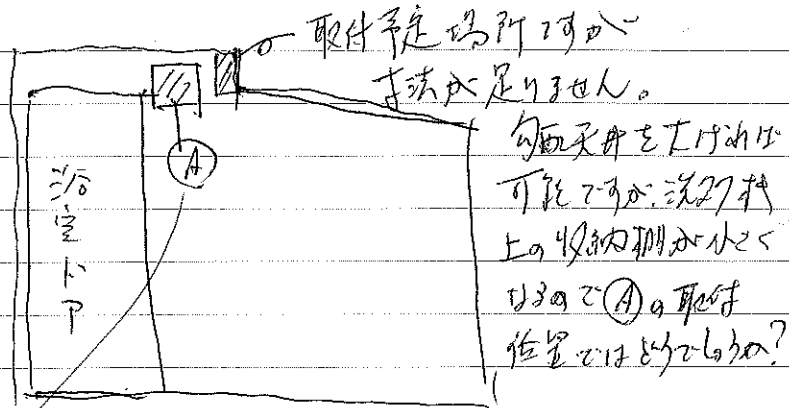 取付予定場所ですが
寸法が足りません。
勾配天井を下げれば
可能ですが、洗タク機
上の収納棚が小さく
なるのでⒶの取付
位置ではどうでしょうか?
Ⓐ
浴室ドア